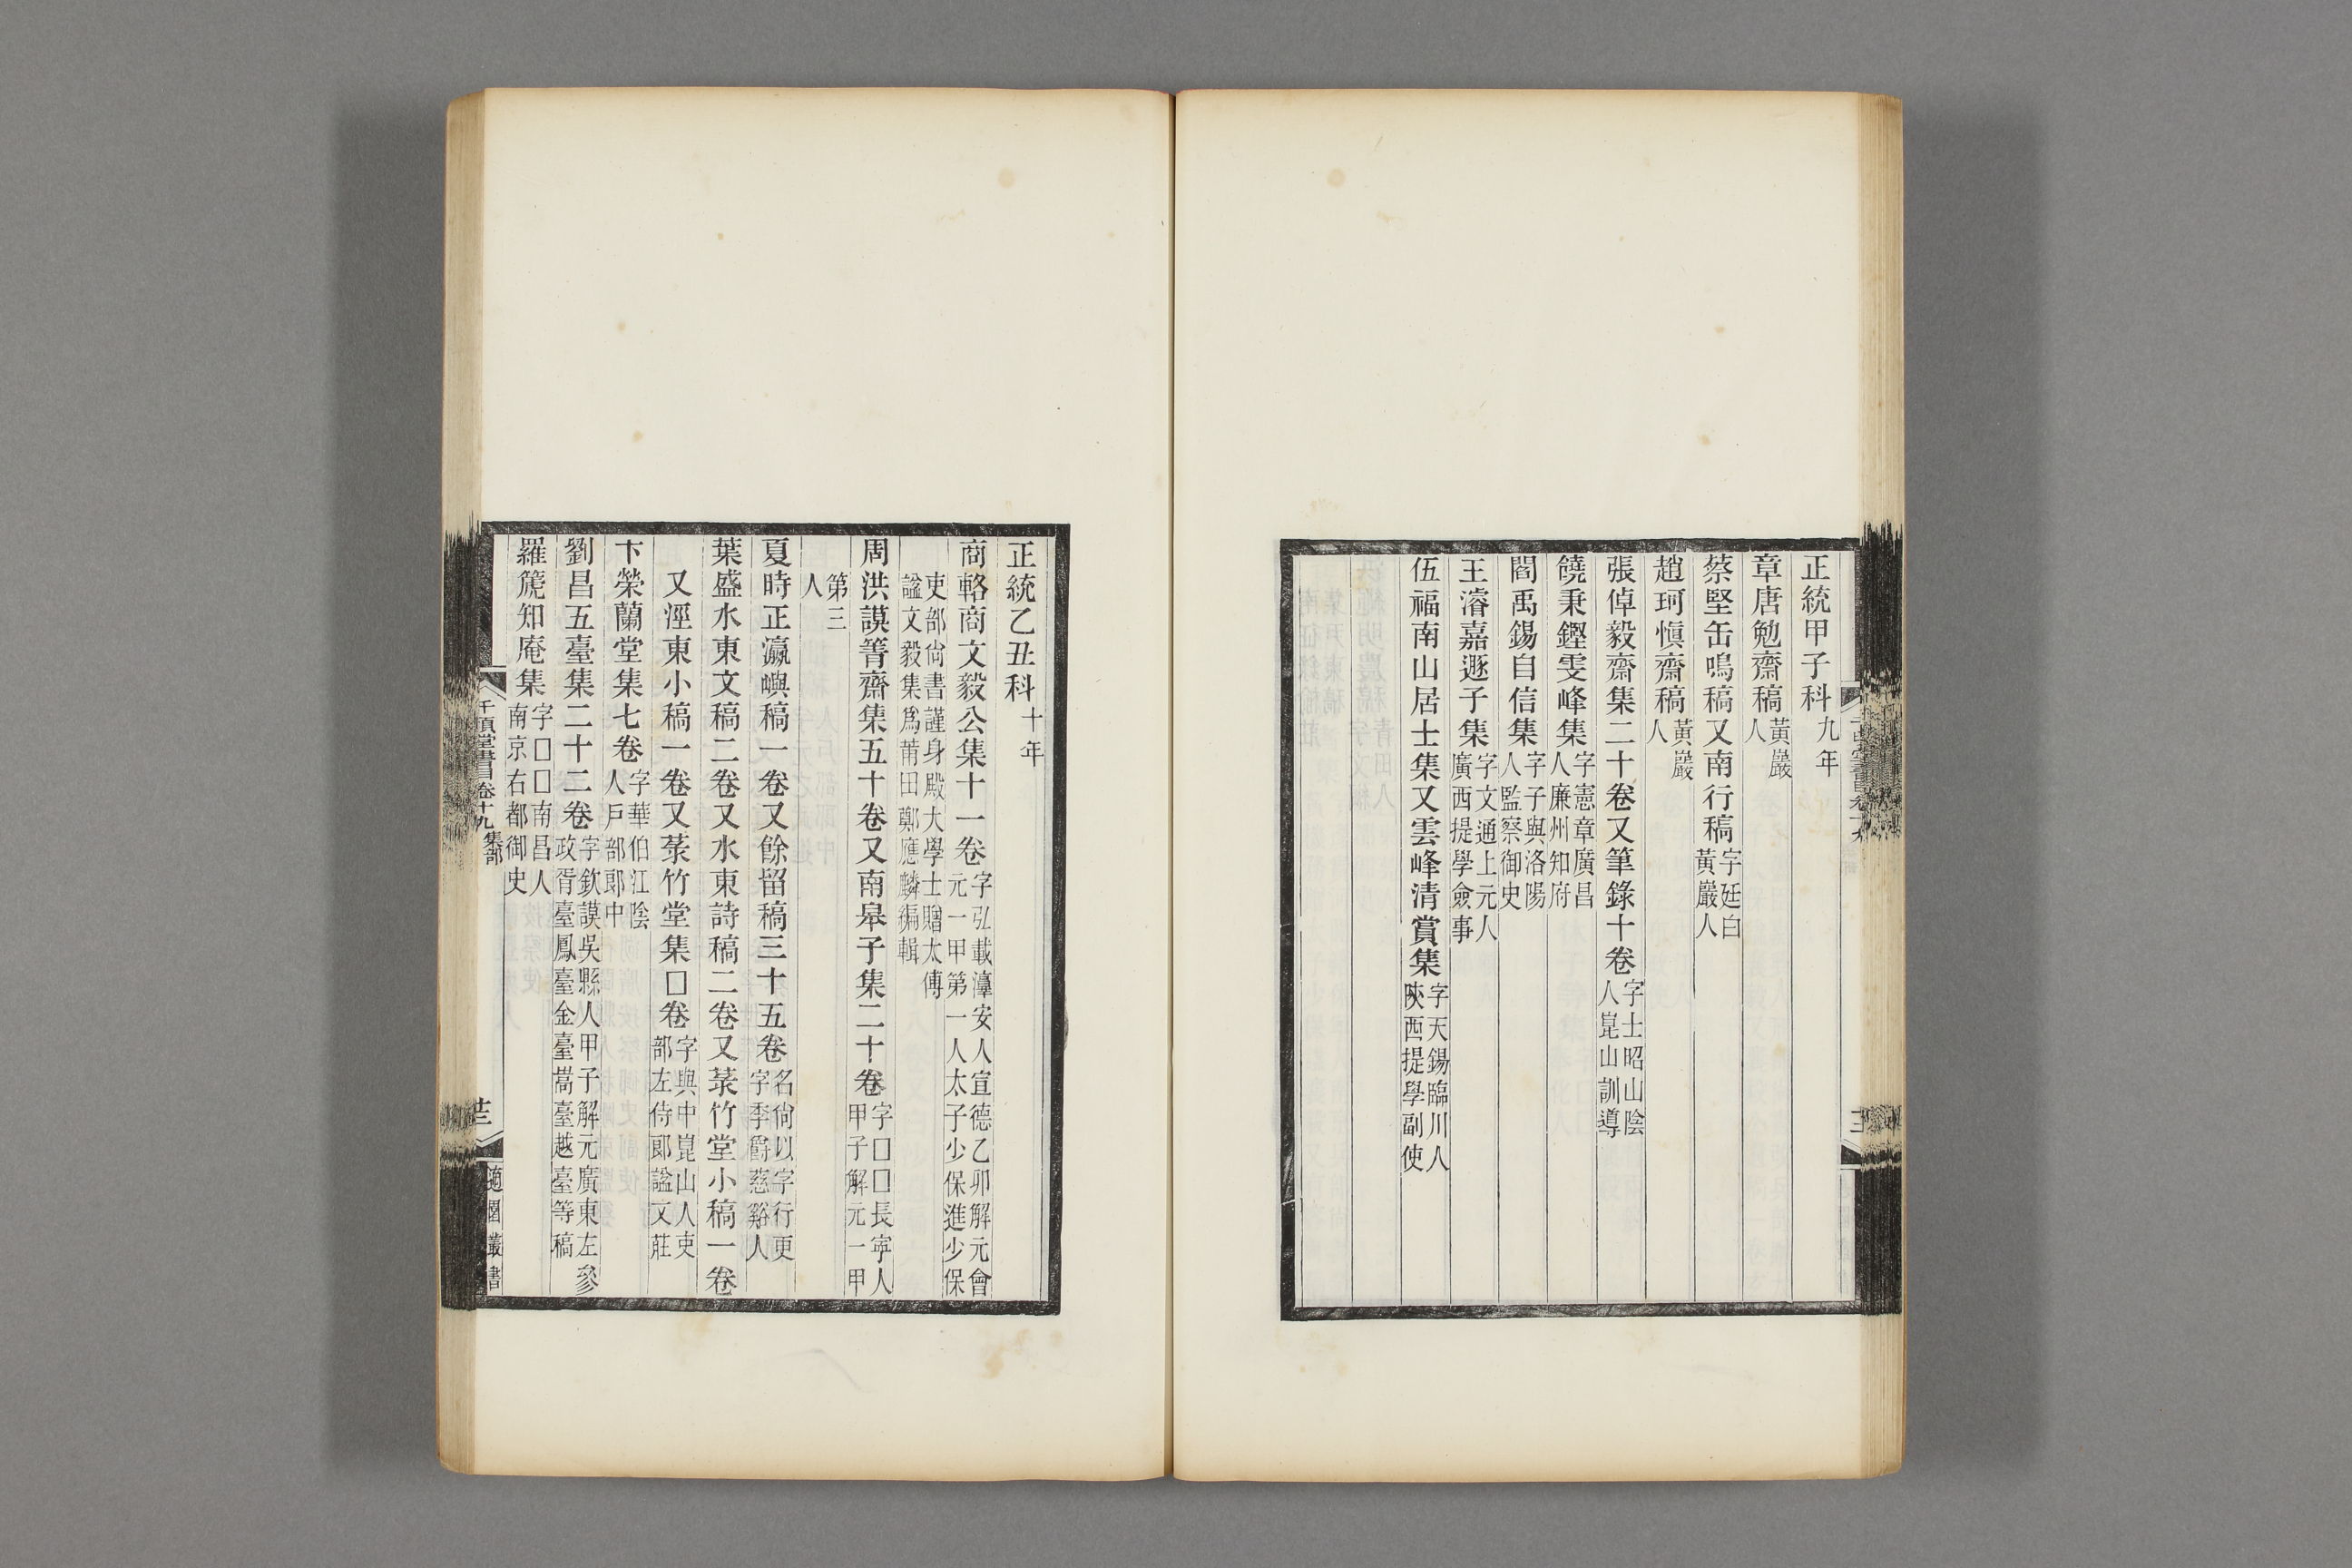 正統甲子科九年
章唐勉齋稿黃巖人
蔡堅缶鳴稿又南行稿字廷白黃巖人
趙珂愼齋稿黃巖人
張倬毅齋集二十卷又筆錄十卷字士昭山陰人崑山訓導
饒秉鑑雯峰集字憲章廣昌人廉州知府
閻禹錫自信集字子與洛陽人監察御史
王濬嘉遯子集字文通上元人廣西提學僉事
伍福南山居士集又雲峰清賞集字天錫臨川人陝西提學副使
正統乙丑科十年
商輅商文毅公集十一卷字弘載淳安人宣德乙卯解元會元一甲第一人太子少保進少保
吏部尙書謹身殿大學士贈太傅諡文毅集爲莆田鄭應麟編輯
周洪謨箐齋集五十卷又南皋子集二十卷字□□長寧人甲子解元一甲
第三人
夏時正瀛嶼稿一卷又餘留稿三十五卷名尙以字行更字季爵慈谿人
葉盛水東文稿二卷又水東詩稿二卷又菉竹堂小稿一卷
又涇東小稿一卷又菉竹堂集□卷字與中崑山人吏部左侍郞諡文莊
卞榮蘭堂集七卷字華伯江陰人戶部郞中
劉昌五臺集二十二卷字欽謨吳縣人甲子解元廣東左參政胥臺鳳臺金臺嵩臺越臺等稿
羅箎知庵集字□□南昌人南京右都御史
千頃堂書目卷十九集部
廿三
適園叢書